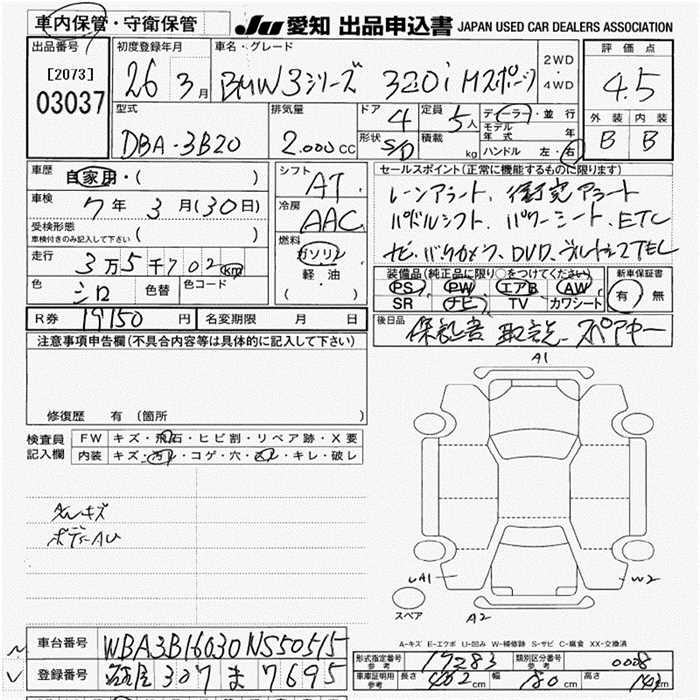 車内保管・守衛保管
JU 愛知 出品申込書 JAPAN USED CAR DEALERS ASSOCIATION
出品番号
[2073]
03037
初度登録年月
26 3月
車名・グレード
BMW3シリーズ 320i Mスポーツ
2WD
・
4WD
評価点
4.5
外装 内装
B B
型式
DBA-3B20
排気量
2.000cc
ドア 4
形状 S/D
定員 5人
積載 kg
ディーラー・並行
モデル年式 年
ハンドル 左・右
車歴
自家用・( )
車検
7年 3月(30日)
受検形態
車検付きのみ記入して下さい ( )
走行
3万5千702km
色 シロ 色替 色コード
シフト
AT
冷房
AAC
燃料
ガソリン
・
軽・油
( )
セールスポイント(正常に機能するものに限ります)
レーンアラート、衝突アラート
パドルシフト、パワーシート、ETC
ナビ、バックカメラ、DVD、
装備品(純正品に限り○をつけてください)
PS PW エアB AW
SR ナビ TV カワシート
新車保証書
有・無
R券 19150円 名変期限 月 日
後日品 保証書 取説 スペアキー
注意事項申告欄(不具合内容等は具体的に記入して下さい)
修復歴 有 (箇所 )
検査員
記入欄
FW キズ・飛石・ヒビ割・リペア跡・X要
内装 キズ・汚れ・コゲ・穴・スレ・キレ・破レ
タルキズ
ボディーAU
A1
UA1
W2
A2
スペア
A-キズ E-エクボ U-凹み W-補修跡 S-サビ C-腐食 XX-交換済
車台番号 WBA3B16030NS50515
登録番号 名古屋 307 ま 7695
型式指定番号
参考
17283
類別区分番号
参考
0008
車庫証明用
参考
長さ 462cm 幅 180cm 高さ 144cm